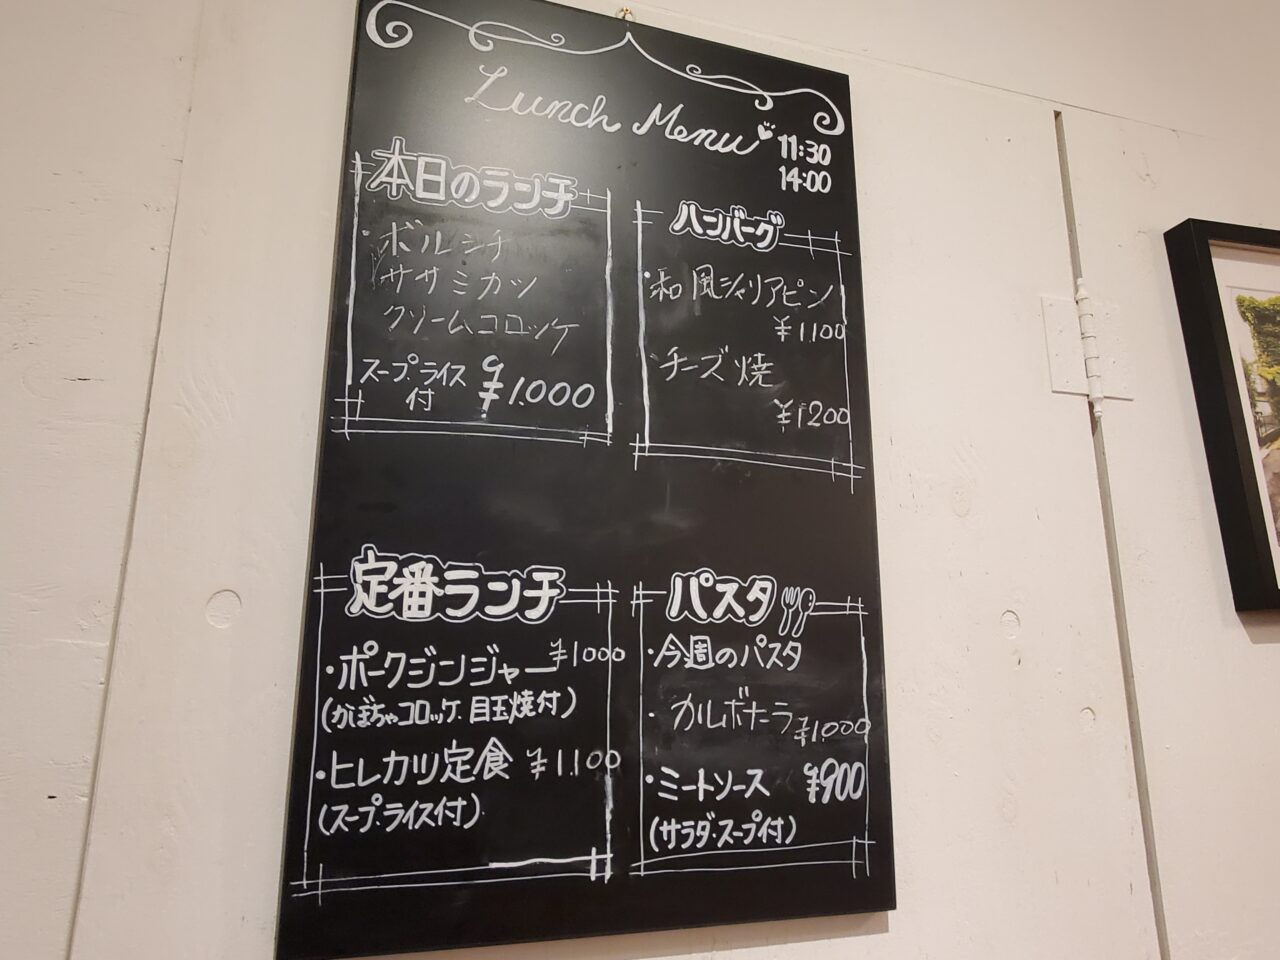 Lunch Menu
11:30
14:00
本日のランチ
・ボルシチ
ササミカツ
クリームコロッケ
スープ.ライス付 ¥1.000
ハンバーグ
・和風シャリアピン
¥1.100
・チーズ焼
¥1200
定番ランチ
・ポークジンジャー ¥1000
(かぼちゃコロッケ.目玉焼付)
・ヒレカツ定食 ¥1.100
(スープ.ライス付)
パスタ
・今週のパスタ
・カルボナーラ ¥1.000
・ミートソース ¥900
(サラダ・スープ付)